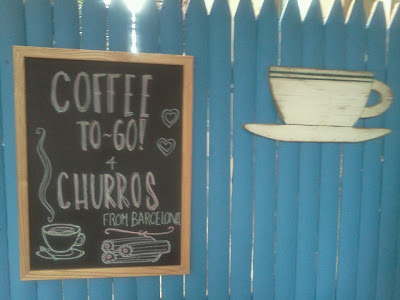 COFFEE
TO~GO!
+
CHURROS
FROM BARCELONA